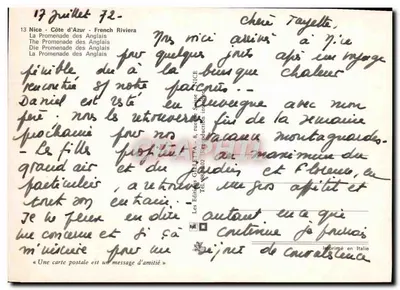 17 juillet 72 -
Chère Tayette,
13 Nice - Côte d'Azur - French Riviera
La Promenade des Anglais
The Promenade des Anglais
Die Promenade des Anglais
La Promenade des Anglais
Nous voici arrivés à Nice
pour quelques jours après un voyage
pénible du à la brusque chaleur
rencontrée sur notre parcours...
Daniel est resté en Auvergne avec mon
père. Nous les retrouverons fin de la semaine
prochaine pour nos vacances montagnardes
- Les filles profitent au maximum du
grand air et du jardin et Florence, en
particulier, a retrouvé un gros appétit et
tout son entrain.
Je ne peux en dire autant en ce que
me concerne et si çà continue je pourrai
m'inscrire pour un séjour de convalescence
Imprimé en Italie
« Une carte postale est un message d'amitié »